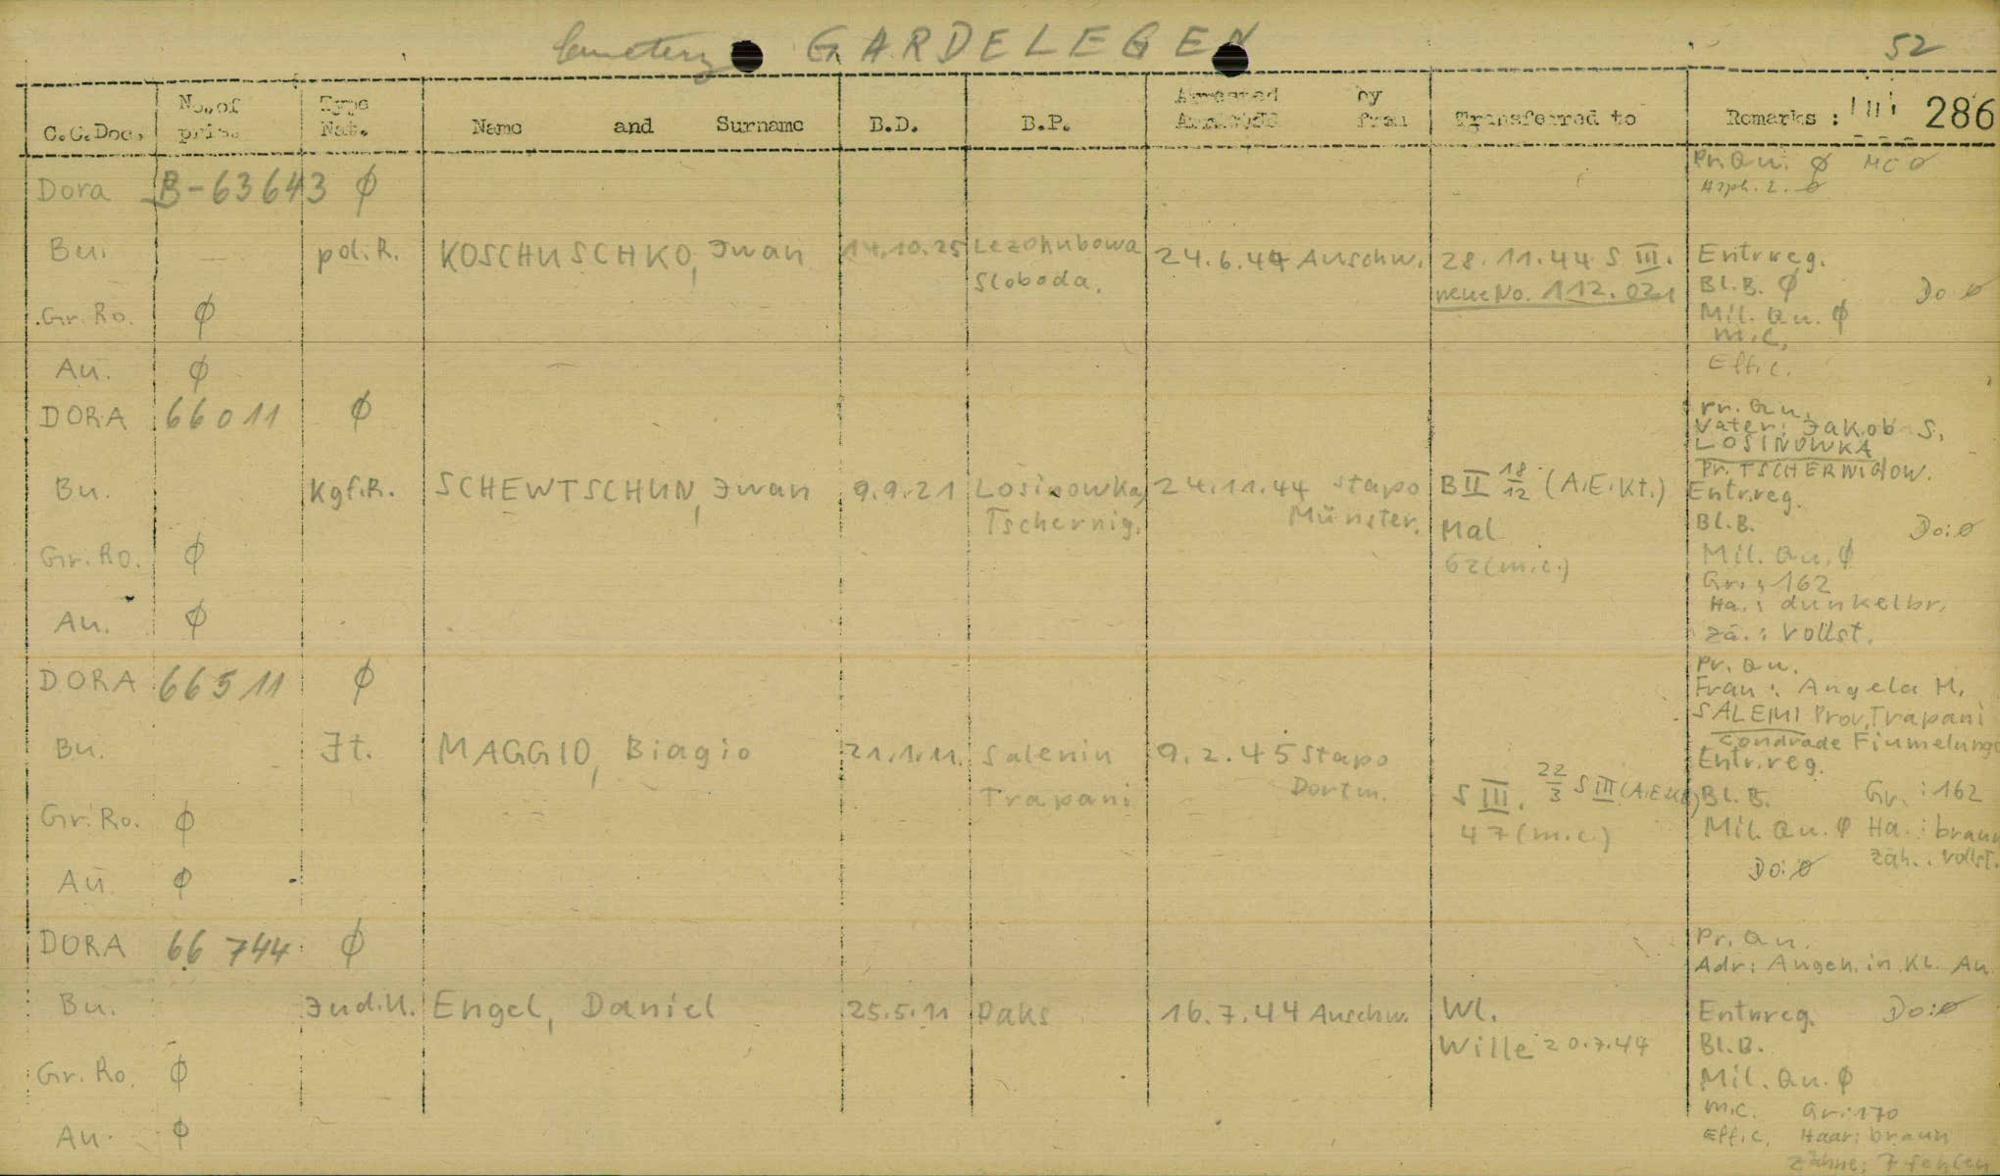 Cemetery GARDELEGEN 52
C.C.Doc. No. of pris. Type Nat. Name and Surname B.D. B.P. Arrested by from Transferred to Remarks : 286
Dora B-63643 ø Pr. Qu. ø MC ø
ø
Bu. — pol.R. KOSCHUSCHKO, Iwan 14.10.25 24.6.44 Auschw. 28.11.44 S III. Entr.reg.
Sloboda. neue No. 112.021 Bl.B. ø Do ø
Gr. Ro. ø Mil. Qu. ø
m.c.
Au. ø Effic.
DORA 66011 ø Pr. Qu.
Vater: Jakob S.
LOSINOWKA
Pr. TSCHERNIGOW.
Bu. Kgf.R. SCHEWTSCHUN, Iwan 9.9.21 Losinowka, 24.11.44 Stapo B II 18/12 (A.E.Kt.) Entr.reg.
Tschernig. Münster. Mal Bl.B. Do: ø
Gr. Ro. ø 62 (m.c.) Mil. Qu. ø
Gr.: 162
Ha.: dunkelbr.
Au. ø Zä.: vollst.
DORA 66511 ø Pr. Qu.
Frau: Angela M.
SALEMI Prov. Trapani
Bu. It. MAGGIO, Biagio 21.1.11. Salenin 9.2.45 Stapo Entr.reg.
Trapani Dortm. S III. 22/3 S III Bl.B. Gr.: 162
Gr. Ro. ø 47 (m.c.) Mil. Qu. ø Ha.: braun
Au. ø Do: ø Zäh.: vollst.
DORA 66 744 ø Pr. Qu.
Adr: Angeh. in KL. Au
Bu. Jud.U. Engel, Daniel 25.5.11 Paks 16.7.44 Auschw. Wl. Entr.reg. Do: ø
Wille 20.7.44 Bl.B.
Gr. Ro. ø Mil. Qu. ø
m.c. Gr: 170
Au. ø Effic. Haar: braun
Zähne: 7 fehlen